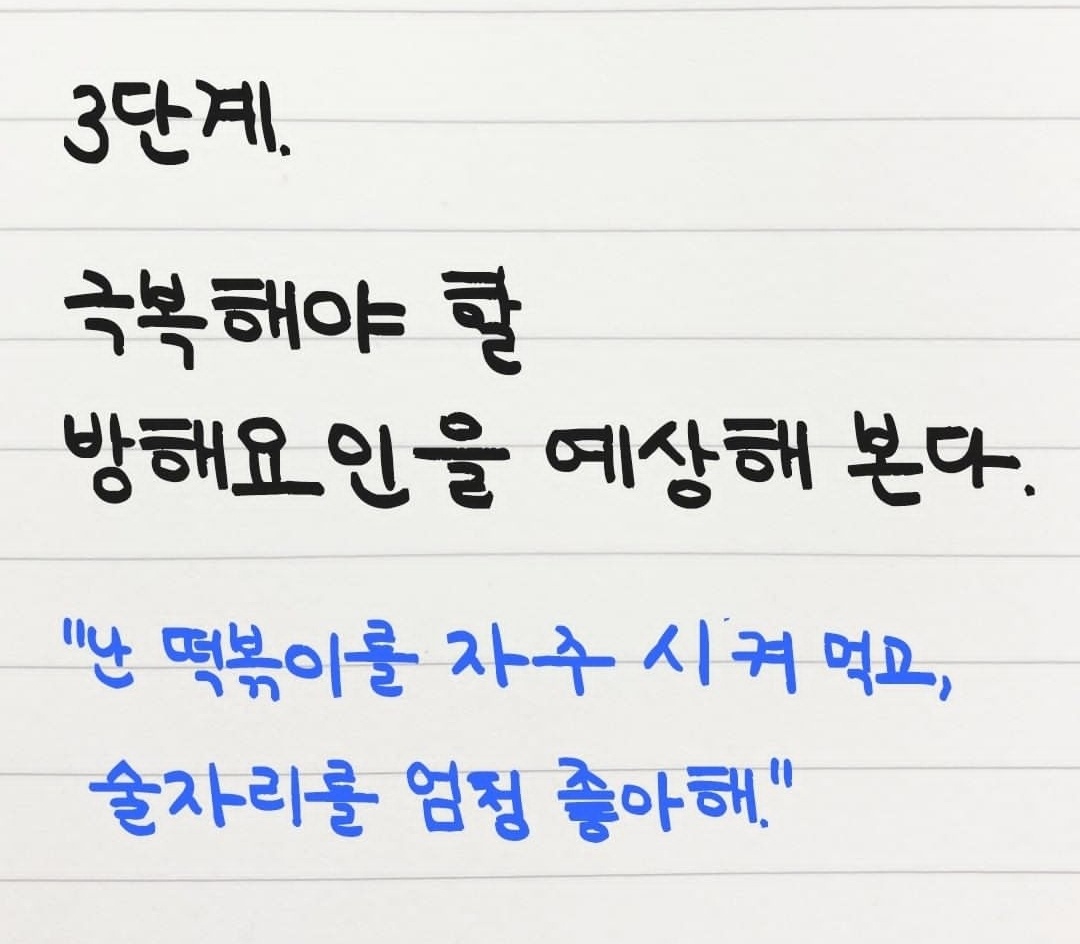 3단계.
극복해야 할
방해요인을 예상해 본다.
"난 떡볶이를 자주 시켜 먹고,
술자리를 엄청 좋아해."